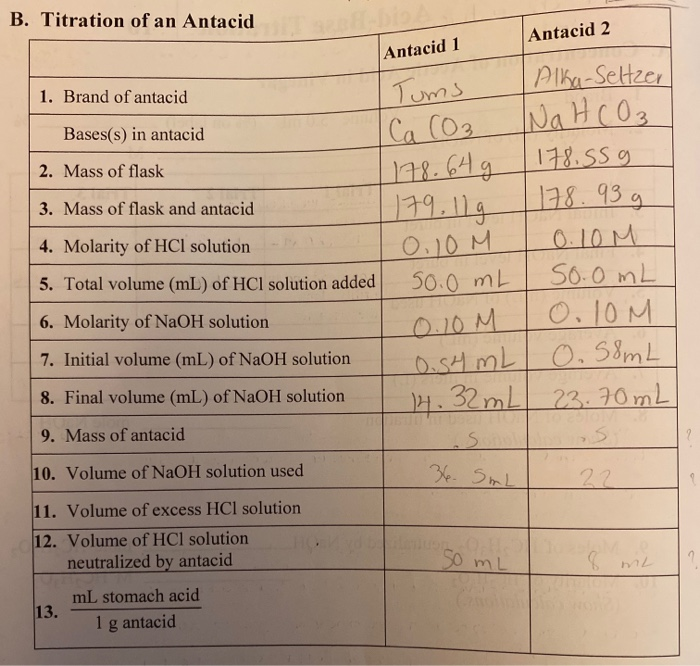 B. Titration of an Antacid
Antacid 1 Antacid 2
1. Brand of antacid Tums Alka-Seltzer
Bases(s) in antacid CaCO3 NaHCO3
2. Mass of flask 178.64g 178.55g
3. Mass of flask and antacid 179.11g 178.93g
4. Molarity of HCl solution 0.10 M 0.10 M
5. Total volume (mL) of HCl solution added 50.0 mL 50.0 mL
6. Molarity of NaOH solution 0.10 M 0.10 M
7. Initial volume (mL) of NaOH solution 0.54 mL 0.58mL
8. Final volume (mL) of NaOH solution 14.32mL 23.70mL
9. Mass of antacid .5 .5 ?
10. Volume of NaOH solution used 36.5mL 22 ?
11. Volume of excess HCl solution
12. Volume of HCl solution
neutralized by antacid 50 mL 8 mL ?
13. mL stomach acid
1 g antacid